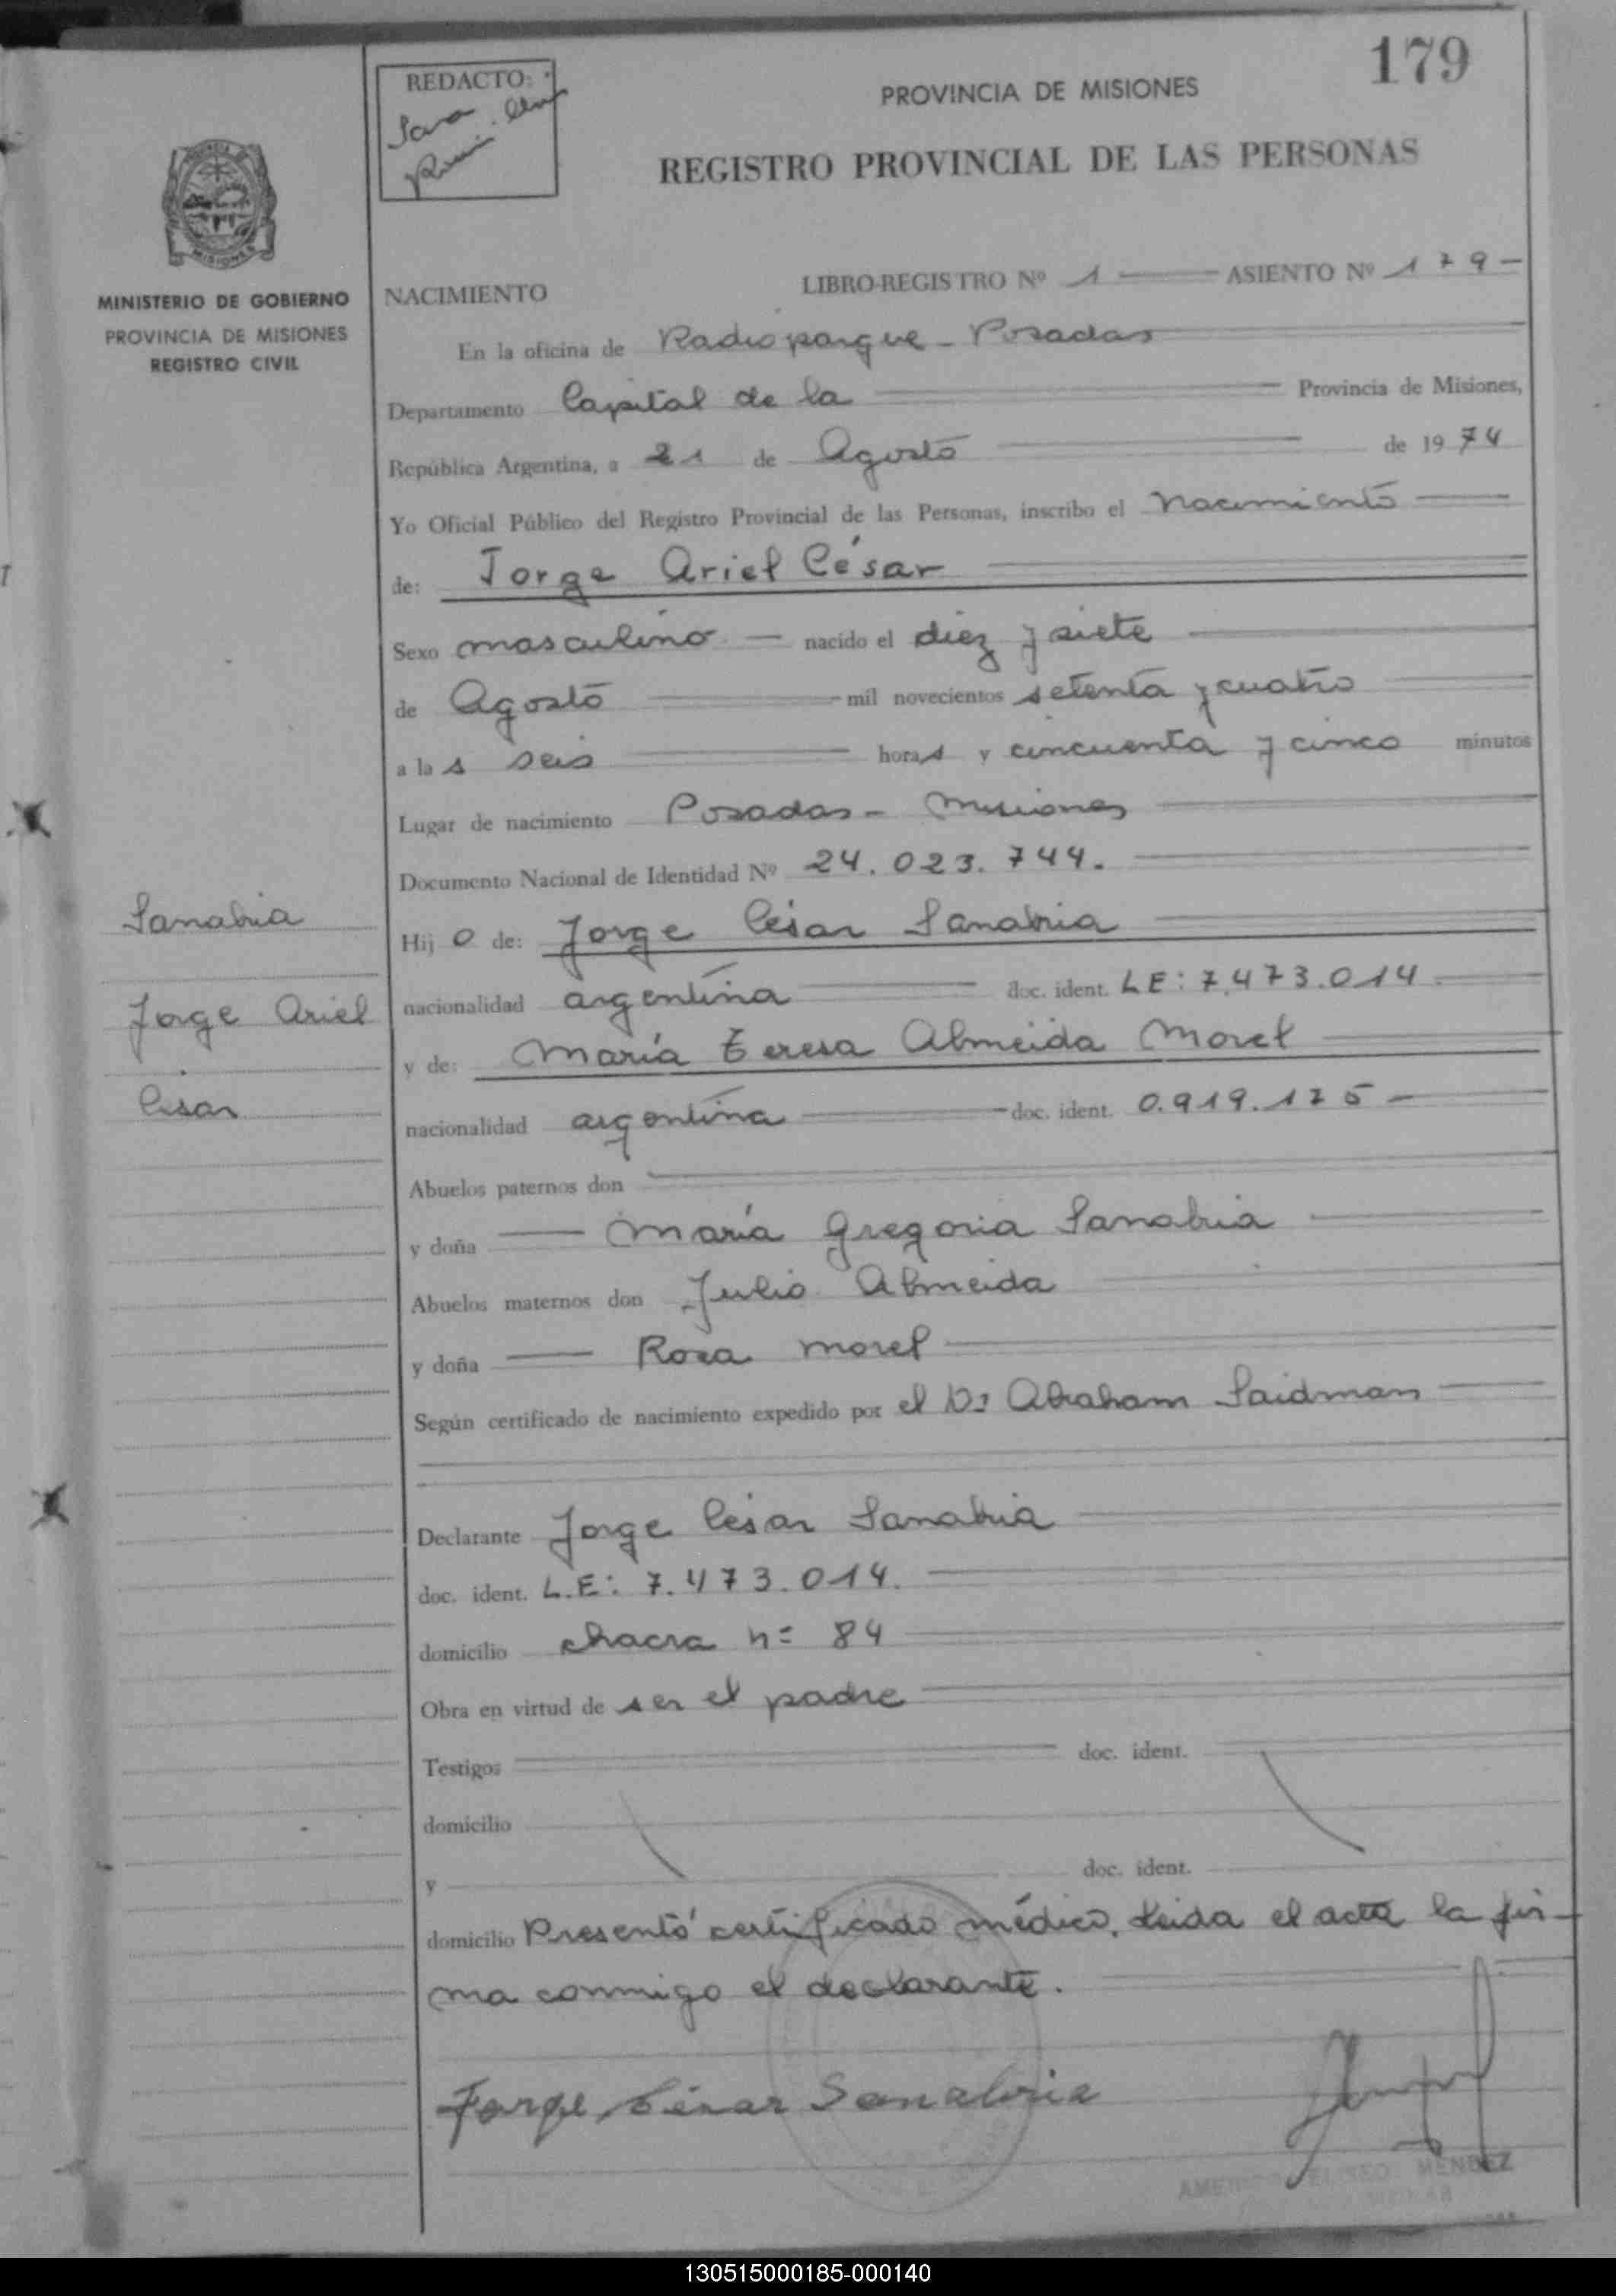 179
REDACTO:
Sara
PROVINCIA DE MISIONES
REGISTRO PROVINCIAL DE LAS PERSONAS
MISIONES
MINISTERIO DE GOBIERNO
PROVINCIA DE MISIONES
REGISTRO CIVIL
NACIMIENTO LIBRO-REGISTRO Nº 1 ASIENTO Nº 179-
En la oficina de Radioparque - Posadas
Departamento Capital de la Provincia de Misiones,
República Argentina, a 21 de Agosto de 1974
Yo Oficial Público del Registro Provincial de las Personas, inscribo el nacimiento
de: Jorge Ariel César
Sexo masculino — nacido el diez y siete
de Agosto mil novecientos setenta y cuatro
a las seis horas y cincuenta y cinco minutos
Lugar de nacimiento Posadas - Misiones
Documento Nacional de Identidad Nº 24.023.744.
Sanabria
Hijo de: Jorge César Sanabria
Jorge Ariel
nacionalidad argentina doc. ident. LE: 7.473.014.
y de: María Teresa Almeida Morel
César
nacionalidad argentina doc. ident. 0.919.175 -
Abuelos paternos don
y doña — María Gregoria Sanabria
Abuelos maternos don Julio Almeida
y doña — Rosa Morel
Según certificado de nacimiento expedido por el Dr Abraham Saidman
Declarante Jorge César Sanabria
doc. ident. L.E: 7.473.014.
domicilio chacra nº 84
Obra en virtud de ser el padre
Testigos doc. ident.
domicilio
y doc. ident.
domicilio Presentó certificado médico. Leida el acta la fir-
ma conmigo el declarante.
Jorge César Sanabria
MENDEZ
130515000185-000140